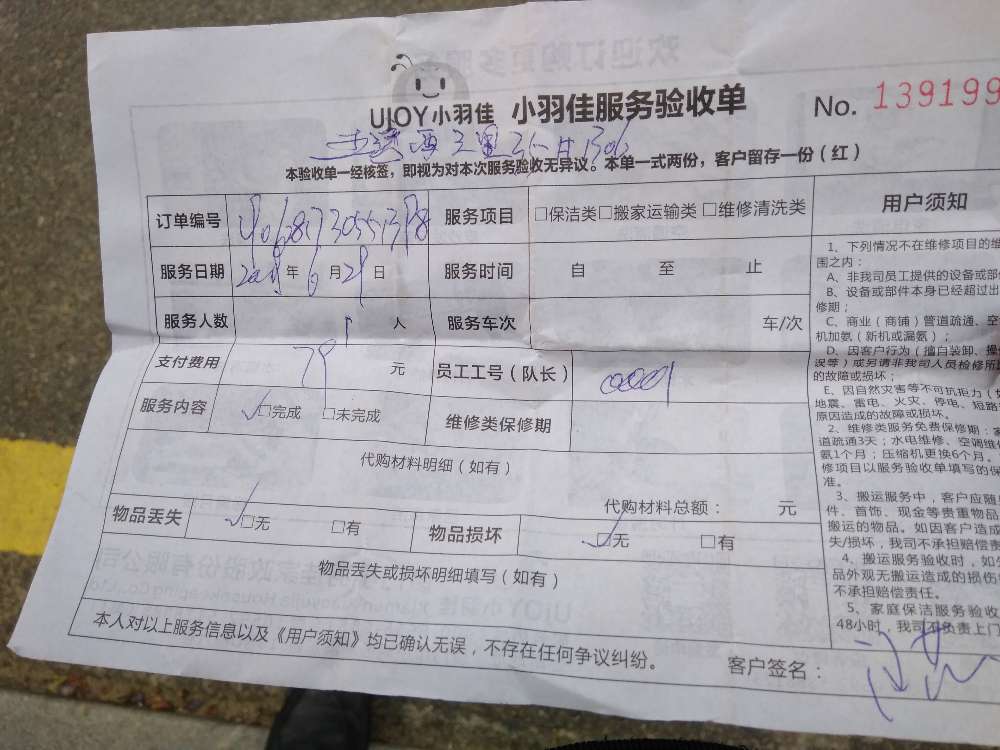 UJOY小羽佳 小羽佳服务验收单 No. 139199
本验收单一经核签，即视为对本次服务验收无异议。本单一式两份，客户留存一份（红）
订单编号 服务项目 □保洁类□搬家运输类 □维修清洗类
服务日期 年 6 月 29 日 服务时间 自 至 止
服务人数 1 人 服务车次 车/次
支付费用 79 元 员工工号（队长）
服务内容 ✓□完成 □未完成 维修类保修期
代购材料明细（如有）
代购材料总额： 元
物品丢失 ✓□无 □有 物品损坏 ✓□无 □有
物品丢失或损坏明细填写（如有）
本人对以上服务信息以及《用户须知》均已确认无误，不存在任何争议纠纷。
客户签名：
用户须知
1、下列情况不在维修项目的维
围之内：
A、非我司员工提供的设备或部
B、设备或部件本身已经超过出
修期；
C、商业（商铺）管道疏通、空
机加氨（新机或漏氨）；
D、因客户行为（擅自装卸、操
误等）或另请非我司人员检修所
的故障或损坏；
E、因自然灾害等不可抗拒力（
地震、雷电、火灾、停电、短路
原因造成的故障或损坏。
2、维修类服务免费保修期：
道疏通3天；水电维修、空调维
氨1个月；压缩机更换6个月。
修项目以服务验收单填写的保
准。
3、搬运服务中，客户应随
件、首饰、现金等贵重物品
搬运的物品。如因客户造成
失/损坏，我司不承担赔偿责
4、搬运服务验收时，如
品外观无搬运造成的损伤
不承担赔偿责任。
5、家庭保洁服务验收
48小时，我司不负责上门